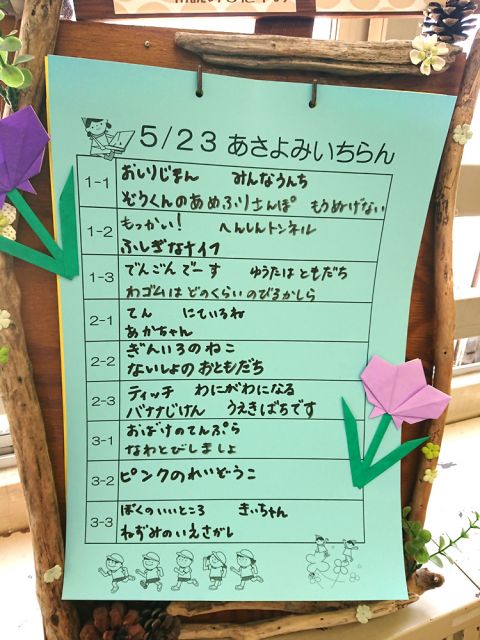 5/23 あさよみいちらん
1-1
おしりじまん みんなうんち
ぞうくんのあめふりさんぽ もうぬげない
1-2
もっかい! へんしんトンネル
ふしぎなナイフ
1-3
でんごんでーす ゆうたはともだち
わゴムはどのくらいのびるかしら
2-1
てん にているね
あかちゃん
2-2
ぎんいろのねこ
ないしょのおともだち
2-3
ティッチ わにがわになる
バナナじけん うえきばちです
3-1
おばけのてんぷら
なわとびしましょ
3-2
ピンクのれいぞうこ
3-3
ぼくのいいところ きいちゃん
ねずみのいえさがし